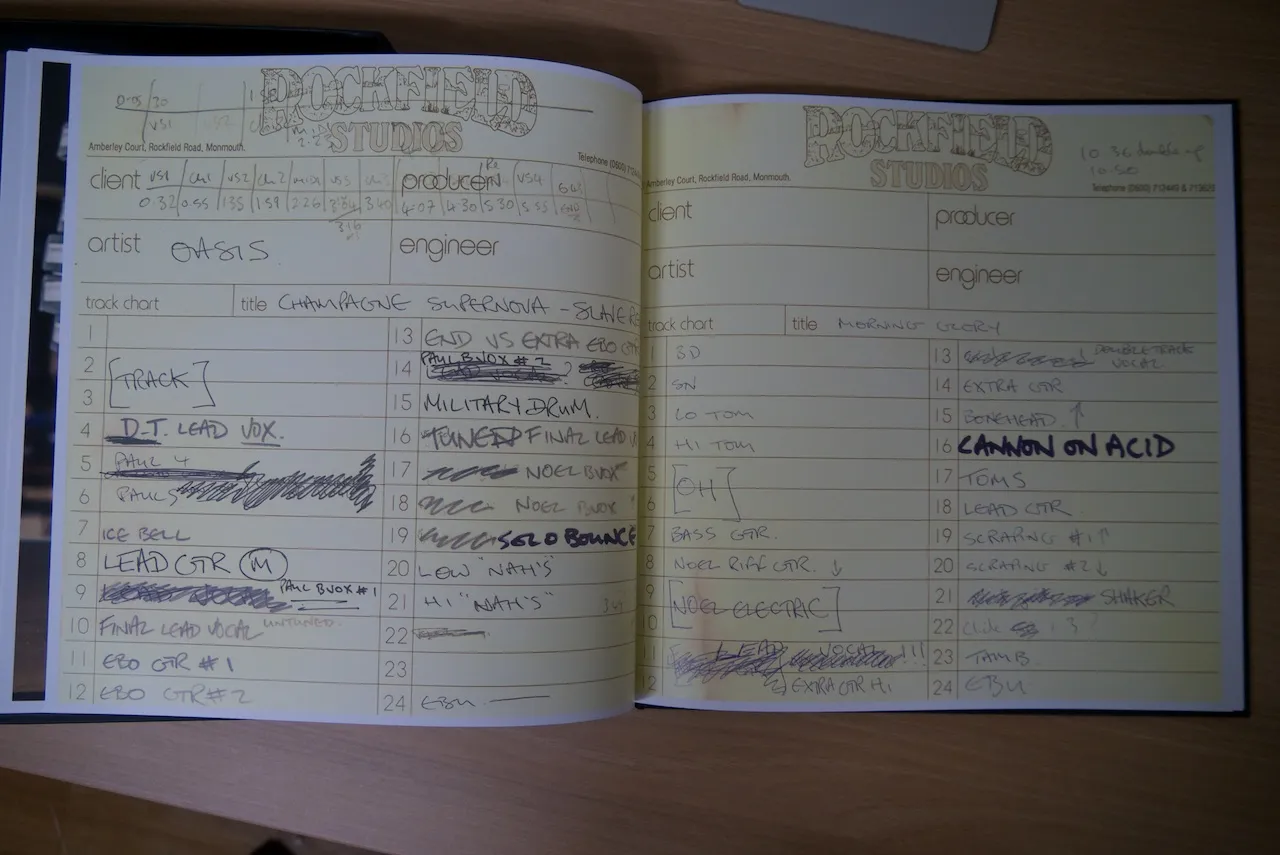 D-TS 30
VS1
ROCKFIELD
STUDIOS
Amberley Court, Rockfield Road, Monmouth.
Telephone (0600) 7124
client
VS1 CH1 VS2 CH2 VS3
0.32 0.55 1.35 1.59 2.26 3.40
3.16
producer
VS4
4.07 4.30 5.30 5.55 END
artist OASIS
engineer
track chart
title CHAMPAGNE SUPERNOVA - SLAVE
1
2 [TRACK]
3
4 D.T. LEAD VOX.
5 PAUL 4
6 PAUL 5
7 ICE BELL
8 LEAD GTR (M)
9 PAUL BVOX #1
10 FINAL LEAD VOCAL UNTUNED.
11 EBO GTR #1
12 EBO GTR #2
13 END VS EXTRA EBO GTR
14 PAUL BVOX #2
15 MILITARY DRUM.
16 TUNED FINAL LEAD
17 NOEL BVOX
18 NOEL BVOX
19 SOLO BOUNCE
20 LOW "NAH'S"
21 HI "NAH'S"
22
23
24 EBU
ROCKFIELD
STUDIOS
10.36 double up
10.50
Amberley Court, Rockfield Road, Monmouth.
Telephone (0600) 712449 & 713625
client
producer
artist
engineer
track chart
title MORNING GLORY
1 BD
2 SN
3 LO TOM
4 HI TOM
5 [OH]
6
7 BASS GTR.
8 NOEL RIFF GTR. ↓
9 [NOEL ELECTRIC]
10
11 LEAD VOCAL!!!
12 EXTRA GTR HI
13 DOUBLE TRACK VOCAL
14 EXTRA GTR
15 BONEHEAD ↑
16 CANNON ON ACID
17 TOMS
18 LEAD GTR.
19 SCRAPING #1 ↑
20 SCRAPING #2 ↓
21 SHAKER
22 Click
23 TAMB.
24 EBU